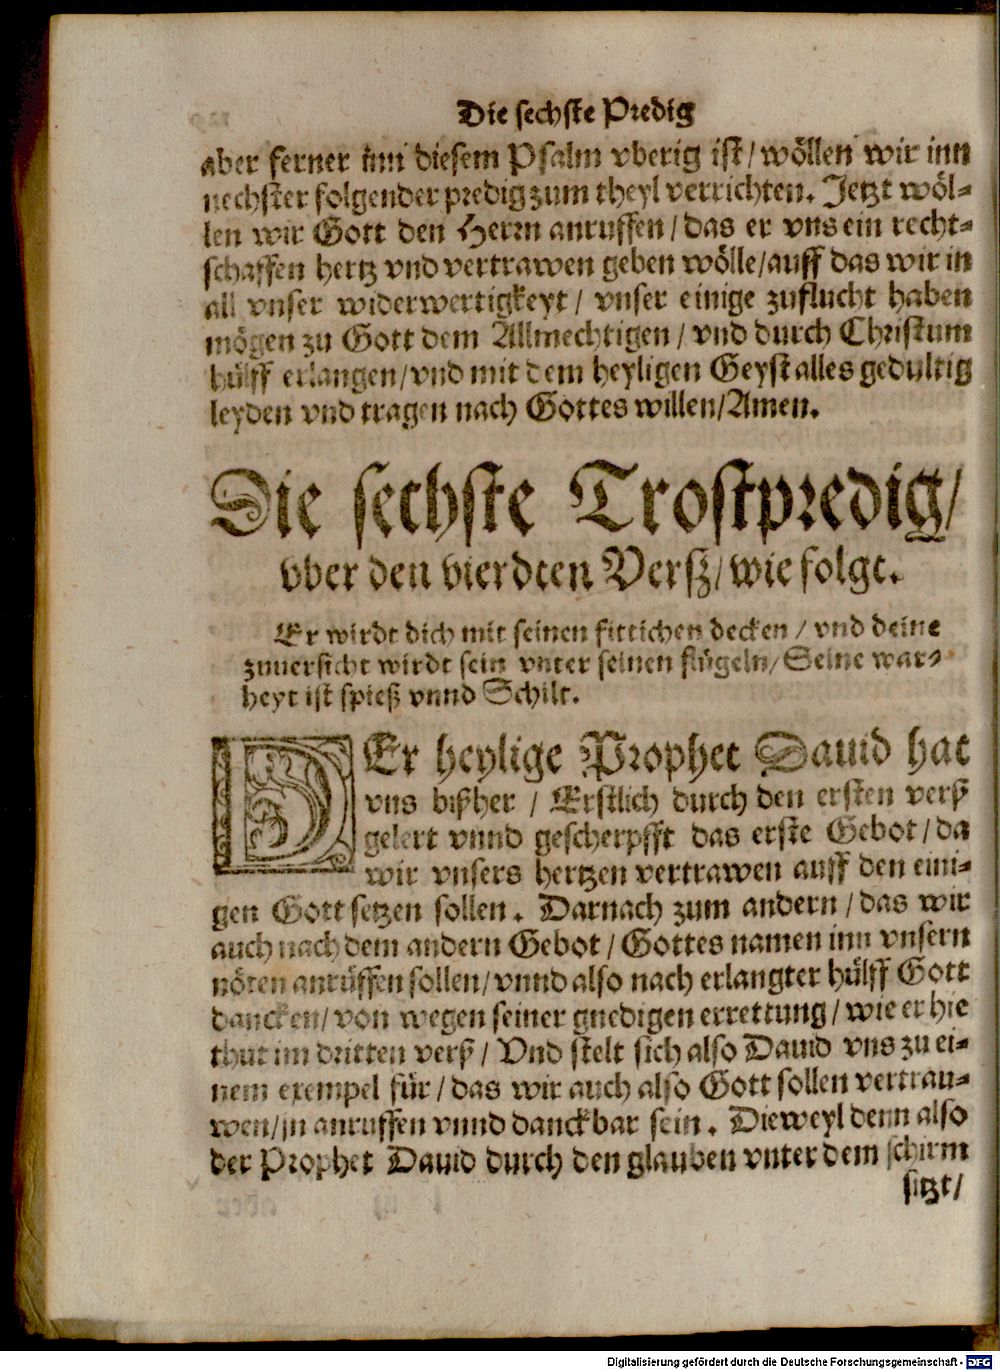 Die sechste Predig
aber ferner inn diesem Psalm vberig ist/wöllen wir inn
nechster folgender predig zum theyl verrichten. Jetzt wöl-
len wir Gott den Herrn anruffen/das er vns ein recht-
schaffen hertz vnd vertrawen geben wölle/auff das wir in
all vnser widerwertigkeyt/ vnser einige zuflucht haben
mögen zu Gott dem Allmechtigen/vnd durch Christum
hülff erlangen/vnd mit dem heyligen Geyst alles gedultig
leyden vnd tragen nach Gottes willen/Amen.
Die sechste Trostpredig/
vber den vierdten Verß/wie folgt.
Er wirdt dich mit seinen fittichen decken/vnd deine
zuuersicht wirdt sein vnter seinen flügeln/Seine war-
heyt ist spieß vnnd Schilt.
DEr heylige Prophet Dauid hat
vns bißher/Erstlich durch den ersten verß
gelert vnnd gescherpfft das erste Gebot/da
wir vnsers hertzen vertrawen auff den eini-
gen Gott setzen sollen. Darnach zum andern/das wir
auch nach dem andern Gebot/Gottes namen inn vnsern
nöten anrüffen sollen/vnnd also nach erlangter hülff Gott
dancken/von wegen seiner gnedigen errettung/wie er hie
thut im dritten verß/Vnd stelt sich also Dauid vns zu ei-
nem exempel für/das wir auch also Gott sollen vertrau-
wen/jn anruffen vnnd danckbar sein. Dieweyl denn also
der Prophet Dauid durch den glauben vnter dem schirm
sitzt/
Digitalisierung gefördert durch die Deutsche Forschungsgemeinschaft - DFG